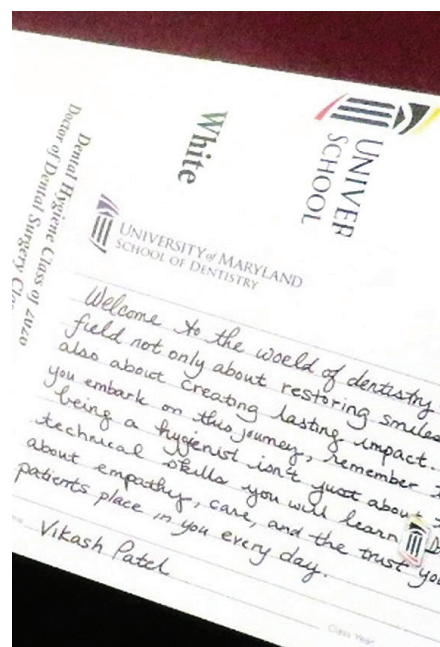 UNIVER
SCHOOL
White
Dental Hygiene Class of 2020
Doctor of Dental Surgery
UNIVERSITY of MARYLAND
SCHOOL OF DENTISTRY
Welcome to the woeld of dentistry
field not only about restoring smiles
also about creating lasting impact.
you embark on this journey, remember
being a hygienist isn't just about
technical skills you will learn
about empathy, care, and the trust
patients place in you every day.
Vikash Patel
Class Year